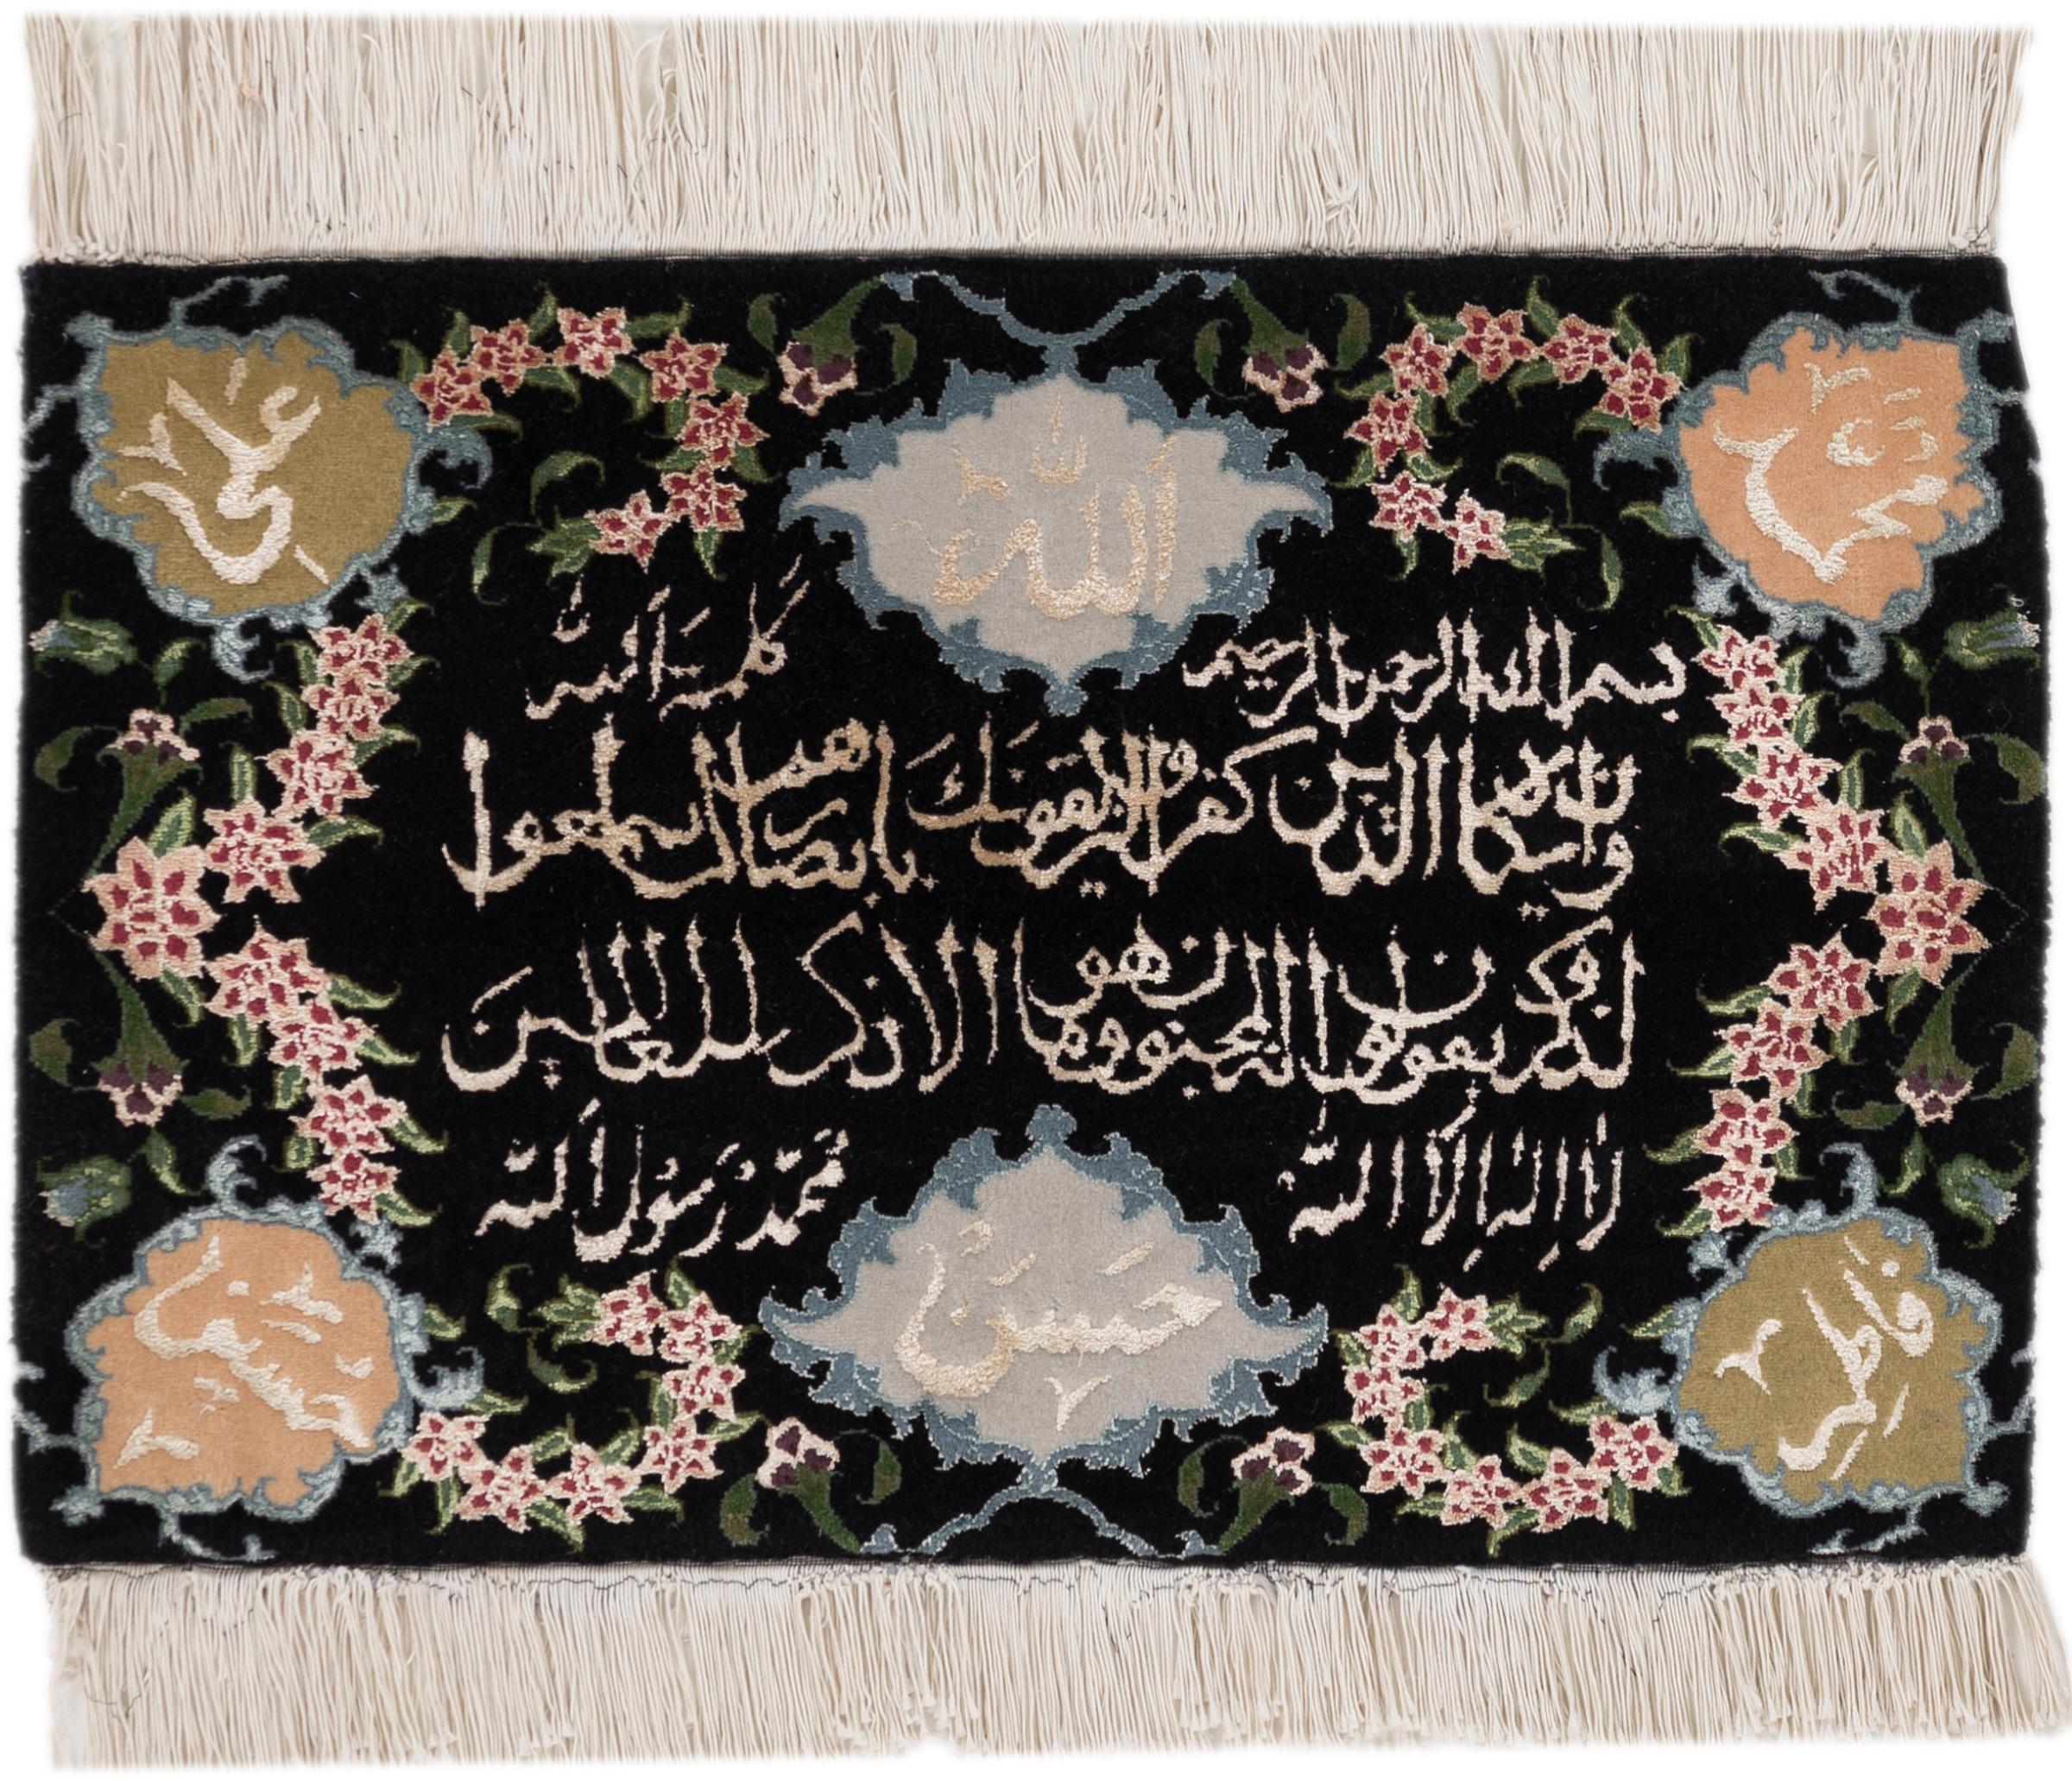 محمد
الله
علی
بسم الله الرحمن الرحیم
كلمة الله
وان یکاد الذین کفروا لیزلقونک بابصارهم لما سمعوا
الذکر و یقولون انه لمجنون و ما هو الا ذکر للعالمین
لا اله الا الله
محمد رسول الله
فاطمه
حسن
حسین